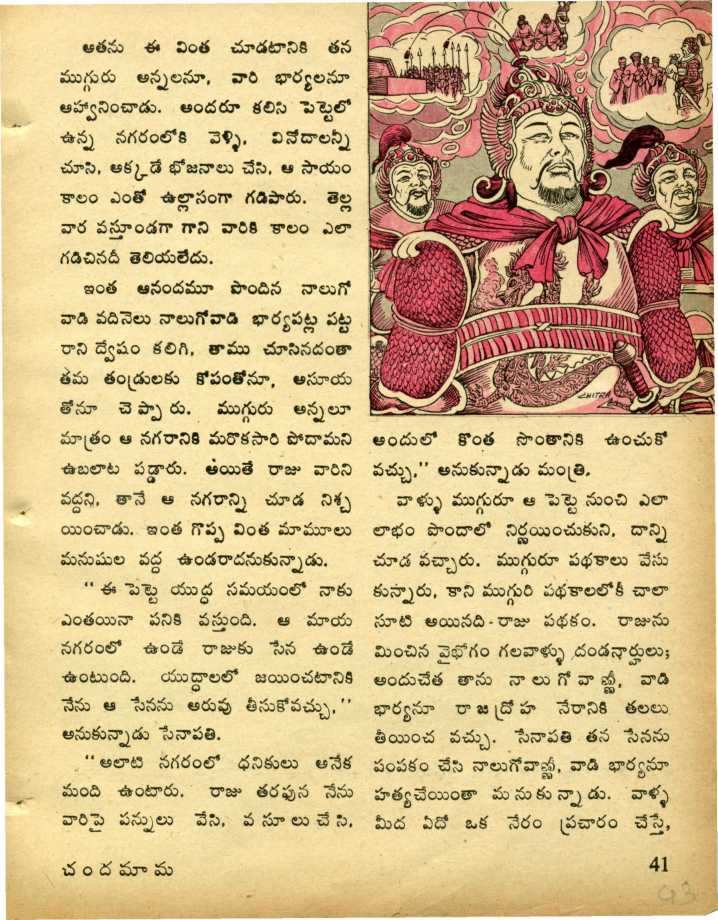 అతను ఈ వింత చూడటానికి తన
ముగ్గురు అన్నలనూ, వారి భార్యలనూ
ఆహ్వానించాడు. అందరూ కలిసి పెట్టెలో
ఉన్న నగరంలోకి వెళ్ళి, వినోదాలన్నీ
చూసి, అక్కడే భోజనాలు చేసి, ఆ సాయం
కాలం ఎంతో ఉల్లాసంగా గడిపారు. తెల్ల
వార వస్తూండగా గాని వారికి కాలం ఎలా
గడిచినదీ తెలియలేదు.
ఇంత ఆనందమూ పొందిన నాలుగో
వాడి వదినెలు నాలుగోవాడి భార్యపట్ల పట్ట
రాని ద్వేషం కలిగి, తాము చూసినదంతా
తమ తండ్రులకు కోపంతోనూ, అసూయ
తోనూ చెప్పారు. ముగ్గురు అన్నలూ
మాత్రం ఆ నగరానికి మరొకసారి పోదామని
ఉబలాట పడ్డారు. అయితే రాజు వారిని
వద్దని, తానే ఆ నగరాన్ని చూడ నిశ్చ
యించాడు. ఇంత గొప్ప వింత మామూలు
మనుషుల వద్ద ఉండరాదనుకున్నాడు.
“ఈ పెట్టె యుద్ధ సమయంలో నాకు
ఎంతయినా పనికి వస్తుంది. ఆ మాయ
నగరంలో ఉండే రాజుకు సేన ఉండే
ఉంటుంది. యుద్ధాలలో జయించటానికి
నేను ఆ సేనను అరువు తీసుకోవచ్చు,”
అనుకున్నాడు సేనాపతి.
“అలాటి నగరంలో ధనికులు అనేక
మంది ఉంటారు. రాజు తరఫున నేను
వారిపై పన్నులు వేసి, వసూలుచేసి,
CHITRA
అందులో కొంత సొంతానికి ఉంచుకో
వచ్చు,” అనుకున్నాడు మంత్రి.
వాళ్ళు ముగ్గురూ ఆ పెట్టె నుంచి ఎలా
లాభం పొందాలో నిర్ణయించుకుని, దాన్ని
చూడ వచ్చారు. ముగ్గురూ పథకాలు వేసు
కున్నారు, కాని ముగ్గురి పథకాలలోకీ చాలా
సూటి అయినది - రాజు పథకం. రాజును
మించిన వైభోగం గలవాళ్ళు దండనార్హులు;
అందుచేత తాను నాలుగోవాణ్ణీ, వాడి
భార్యనూ రాజద్రోహ నేరానికి తలలు
తీయించ వచ్చు. సేనాపతి తన సేనను
పంపకం చేసి నాలుగోవాణ్ణీ, వాడి భార్యనూ
హత్యచేయింతా మనుకున్నాడు. వాళ్ళ
మీద ఏదో ఒక నేరం ప్రచారం చేస్తే,
చందమామ
41
93